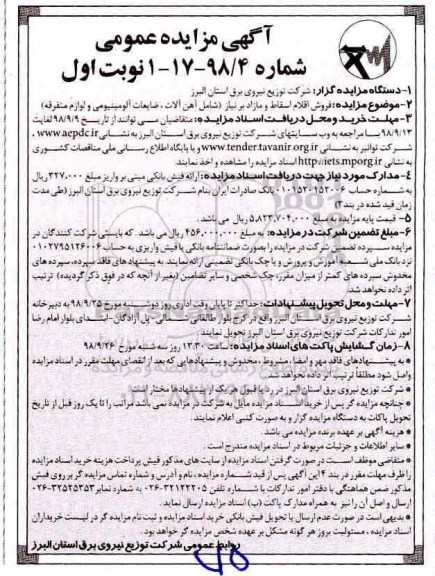 آگهی مزایده عمومی
شماره ۹۸/۴-۱۷-۱ نوبت اول
۱- دستگاه مزایده گزار: شرکت توزیع نیروی برق استان البرز
۲- موضوع مزایده: فروش اقلام اسقاط و مازاد بر نیاز (شامل آهن آلات، ضایعات آلومینیومی و لوازم متفرقه)
۳- مهلت خرید و محل دریافت اسناد مزایده: متقاضیان می توانند از تاریخ ۹۸/۹/۹ لغایت
۹۸/۹/۱۳ با مراجعه به وب سایتهای شرکت توزیع نیروی برق استان البرز به نشانی www.aepdc.ir،
شرکت توانیر به نشانی www.tender.tavanir.org.ir و یا پایگاه اطلاع رسانی ملی مناقصات کشوری
به نشانی http://iets.mporg.ir اسناد مزایده را مشاهده و اخذ نمایند.
۴- مدارک مورد نیاز جهت دریافت اسناد مزایده: ارائه فیش بانکی مبنی بر واریز مبلغ ۳۲۷,۰۰۰ ریال
به شماره حساب ۰۱۰۱۵۲۰۱۵۲۰۰۶ بانک صادرات ایران بنام شرکت توزیع نیروی برق استان البرز (طی مدت
زمان قید شده در بند ۳)
۵- قیمت پایه مزایده به مبلغ ۵,۸۲۳,۷۰۴,۰۰۰ ریال می باشد.
۶- مبلغ تضمین شرکت در مزایده: به مبلغ ۴۵۶,۰۰۰,۰۰۰ ریال می باشد. که بایستی شرکت کنندگان در
مزایده سپرده تضمین شرکت در مزایده را بصورت ضمانتنامه بانکی یا فیش واریزی به حساب ۰۱۰۲۷۹۵۱۲۶۰۰۶
نزد بانک ملی شعبه آموزش و پرورش و یا چک بانکی تضمینی ارائه نمایند. به پیشنهادهای فاقد سپرده، سپرده های
مخدوش سپرده های کمتر از میزان مقرر، چک شخصی و سایر تضامین (بغیر از آنچه که در فوق ذکر گردیده) ترتیب
اثر داده نخواهد شد.
۷- مهلت و محل تحویل پیشنهادات: حداکثر تا پایان وقت اداری روز دوشنبه مورخ ۹۸/۹/۲۵ به دبیرخانه
شرکت توزیع نیروی برق استان البرز واقع در کرج بلوار طالقانی شمالی- پل آزادگان- ابتدای بلوار امام رضا
امور تدارکات شرکت توزیع نیروی برق استان البرز تحویل نمایند.
۸- زمان گشایش پاکت های اسناد مزایده: ساعت ۱۳:۳۰ روز سه شنبه مورخ ۹۸/۹/۲۶
* به پیشنهادهای فاقد مهر و امضاء، مشروط، مخدوش و پیشنهادهایی که بعد از انقضای مهلت مقرر در اسناد مزایده
واصل شود مطلقا ترتیب اثر داده نخواهد شد.
* شرکت توزیع نیروی برق استان البرز در رد یا قبول هر یک از پیشنهادها مختار است.
* چنانچه مزایده گر پس از خرید اسناد مزایده مایل به شرکت در مزایده نمی باشد مراتب را تا یک روز قبل از تاریخ
تحویل پاکات به دستگاه مزایده گزار و به صورت کتبی اعلام نمایند.
* هزینه آگهی بر عهده برنده مزایده می باشد.
* سایر اطلاعات و جزئیات مربوط در اسناد مزایده مندرج است.
* متقاضی موظف است در صورت گرفتن اسناد مزایده از سایت های مذکور فیش پرداخت هزینه خرید اسناد مزایده
را ظرف مهلت مقرر در بند ۴ این آگهی پس از قید شماره مزایده، نام و آدرس و شماره تماس مزایده گر بر روی فیش
مذکور ضمن هماهنگی با دفتر امور تدارکات با شماره تلفن ۳۲۱۲۲۲۰۵-۰۲۶ به شماره نمابر ۳۲۵۲۵۲۵۳-۰۲۶
ارسال و اصل آن را نیز به همراه مدارک پاکت (ب) اسناد مزایده ارسال نماید.
* بدیهی است در صورت عدم ارسال یا تحویل فیش بانکی خرید اسناد مزایده و ثبت نام مزایده گر در لیست خریداران
اسناد مزایده، مسئولیت بروز هر گونه مشکل بر عهده شخص مزایده گر خواهد بود.
روابط عمومی شرکت توزیع نیروی برق استان البرز